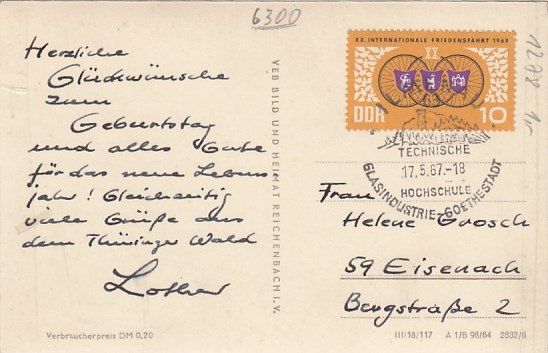 6300
Herzliche
Glückwünsche
zum
Geburtstag
und alles Gute
für das neue Lebens-
jahr! Gleichzeitig
viele Grüße aus
dem Thüringer Wald
Lothar
Verbraucherpreis DM 0,20
VEB BILD UND HEIMAT REICHENBACH i. V.
XX. INTERNATIONALE FRIEDENSFAHRT 1967
XX
DDR
10
63
TECHNISCHE
17.5.67.-18
HOCHSCHULE
GLASINDUSTRIE-GOETHESTADT
Frau
Helene Grosch
59 Eisenach
Bergstraße 2
III/18/117 A 1/B 98/64 2832/II